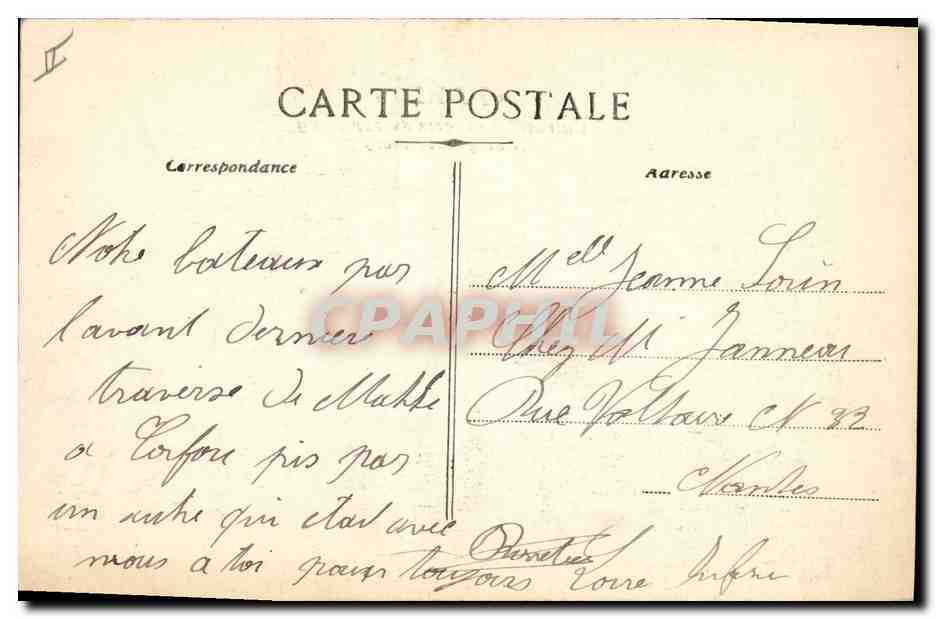 II
CARTE POSTALE
Correspondance
Adresse
Notre bateaux par
lavant dernier
traverse de Malte
a Corfou pis par
un autre qui etai avec
nous a toi pour toujours
Melle Jeanne Lorin
Chez Mr Janneau
Rue Voltaire N 23
Nantes
Loire Infre
CPAPHIL